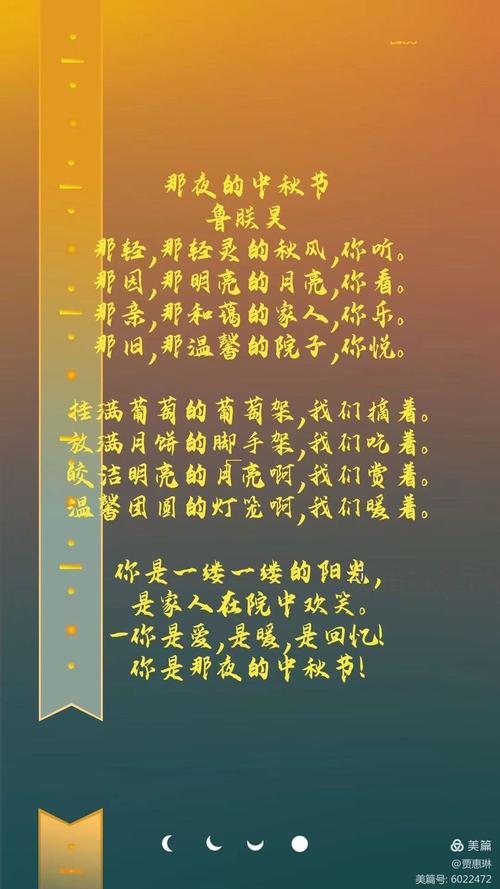 那夜的中秋节
鲁朕昊
那轻,那轻灵的秋风,你听。
那因,那明亮的月亮,你看。
那亲,那和蔼的家人,你乐。
那旧,那温馨的院子,你悦。
挂满葡萄的葡萄架,我们摘着。
放满月饼的脚手架,我们吃着。
皎洁明亮的月亮啊,我们赏着。
温馨团圆的灯笼啊,我们暖着。
你是一缕一缕的阳光,
是家人在院中欢笑。
一你是爱,是暖,是回忆!
你是那夜的中秋节!
美篇
@贾惠琳
美篇号: 6022472